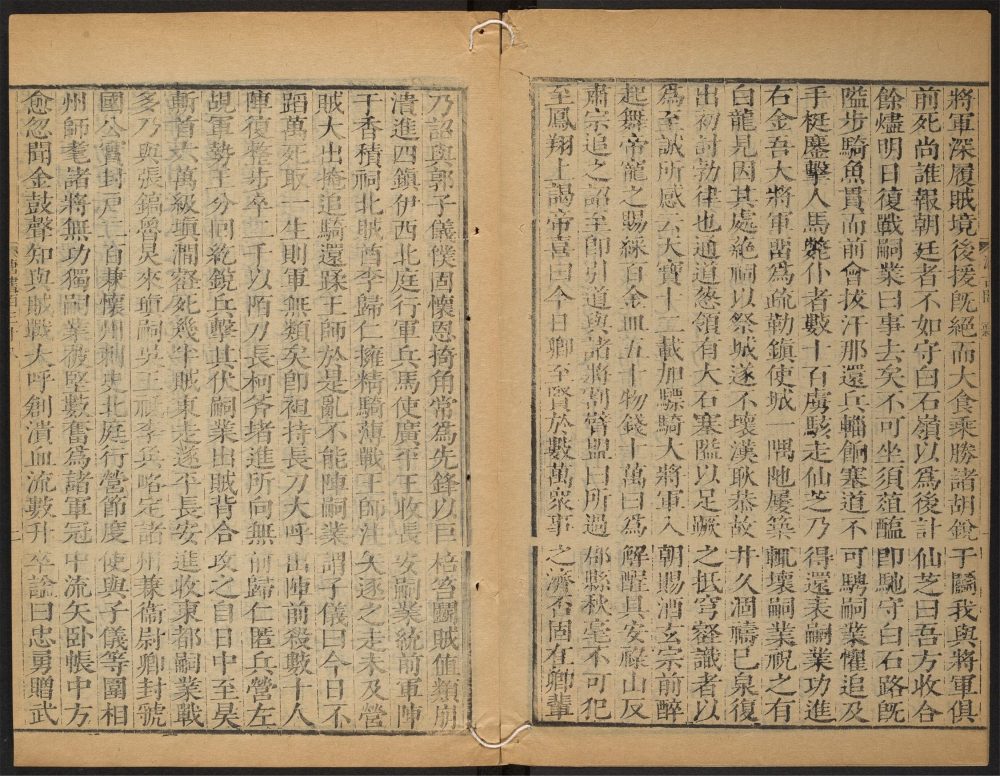 將軍深履賊境後援既絕而大食乘勝諸胡銳于鬭我與將軍俱
前死尚誰報朝廷者不如守白石嶺以為後計仙芝曰吾方收合
餘燼明日復戰嗣業曰事去矣不可坐須葅醢即馳守白石路既
隘步騎魚貫而前會拔汗那還兵輜餉塞道不可騁嗣業懼追及
手梃鏖擊人馬斃仆者數十百虜駭走仙芝乃得還表嗣業功進
右金吾大將軍留為疏勒鎮使城一隅阤屢築輒壞嗣業祝之有
白龍見因其處絕祠以祭城遂不壞漢耿恭故井久涸禱已泉復
出初討勃律也通道葱領有大石塞隘以足蹶之抵穹壑識者以
為至誠所感云天寶十二載加驃騎大將軍入朝賜酒玄宗前醉
起舞帝寵之賜綵百金皿五十物錢十萬曰為解酲具安祿山反
肅宗追之詔至即引道與諸將割臂盟曰所過郡縣秋毫不可犯
至鳳翔上謁帝喜曰今日卿至賢於數萬衆事之濟否固在卿輩
乃詔與郭子儀僕固懷恩掎角常為先鋒以巨棓笞鬭賊值類崩
潰進四鎮伊西北庭行軍兵馬使廣平王收長安嗣業統前軍陣
于香積祠北賊酋李歸仁擁精騎薄戰王師注矢逐之走未及營
賊大出掩追騎還蹂王師於是亂不能陣嗣業謂子儀曰今日不
蹈萬死取一生則軍無類矣即袒持長刀大呼出陣前殺數十人
陣復整步卒二千以陌刀長柯斧堵進所向無前歸仁匿兵營左
覘軍勢王分回紇銳兵擊其伏嗣業出賊背合攻之自日中至昃
斬首六萬級填澗壑死幾半賊東走遂平長安進收東都嗣業戰
多乃與張鎬魯炅來瑱嗣吳王祗李奐略定諸州兼衞尉卿封虢
國公實封戶二百兼懷州刺史北庭行營節度使與子儀等圍相
州師耄諸將無功獨嗣業被堅數奮為諸軍冠中流矢卧帳中方
愈忽聞金鼓聲知與賊戰大呼創潰血流數升卒諡曰忠勇贈武